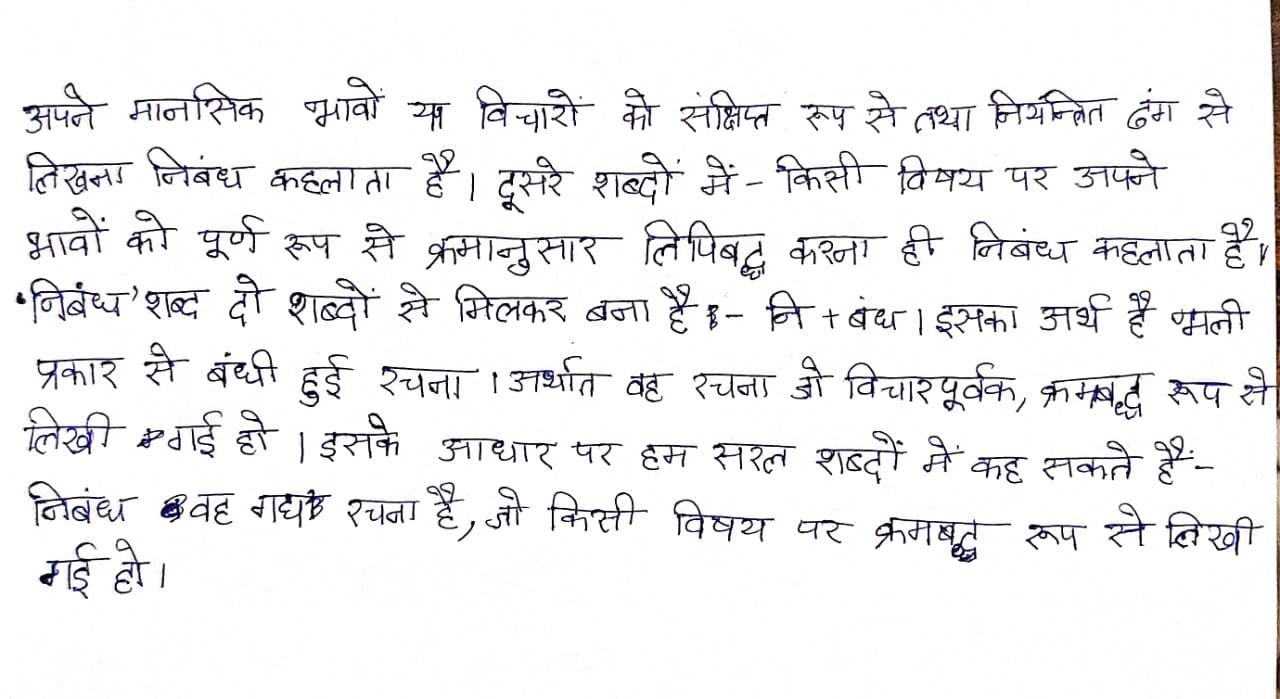 अपने मानसिक भावों या विचारों को संक्षिप्त रूप से तथा नियन्त्रित ढंग से
लिखना निबंध कहलाता है। दूसरे शब्दों में - किसी विषय पर अपने
भावों को पूर्ण रूप से क्रमानुसार लिपिबद्ध करना ही निबंध कहलाता है।
'निबंध' शब्द दो शब्दों से मिलकर बना है :- नि + बंध। इसका अर्थ है भली
प्रकार से बंधी हुई रचना। अर्थात वह रचना जो विचारपूर्वक, क्रमबद्ध रूप से
लिखी गई हो। इसके आधार पर हम सरल शब्दों में कह सकते हैं:-
निबंध वह गद्य रचना है, जो किसी विषय पर क्रमबद्ध रूप से लिखी
गई हो।